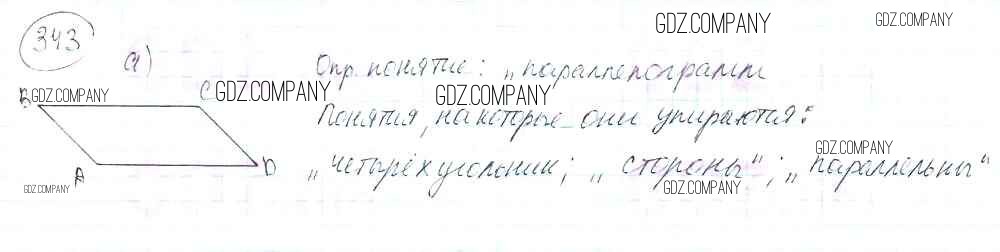 343
GDZ.COMPANY
GDZ.COMPANY
а)
GDZ.COMPANY
Опр. понятие: „параллелограмм
B
GDZ.COMPANY
C
GDZ.COMPANY
GDZ.COMPANY
Понятия, на которые они упираются:
GDZ.COMPANY
A
D
„четырёхугольник; „стороны“; „параллельны“
GDZ.COMPANY
GDZ.COMPANY